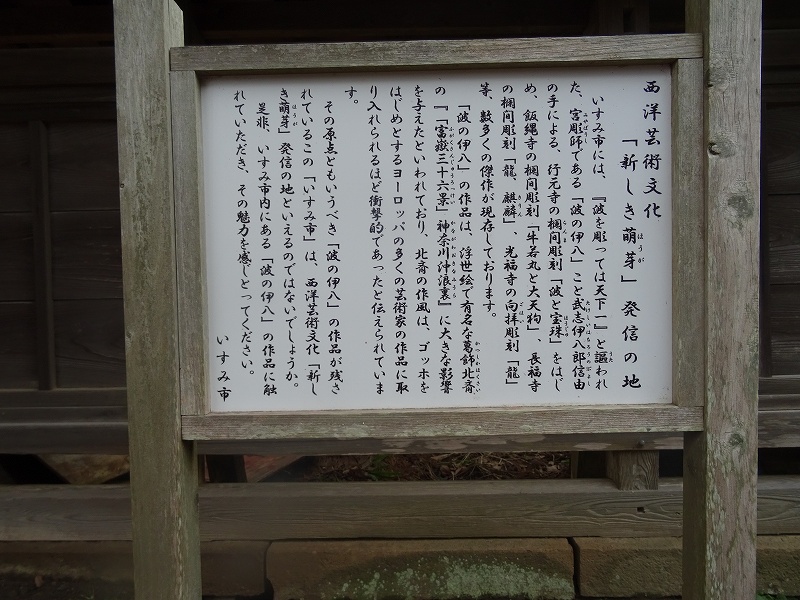 西洋芸術文化
「新しき萌芽」発信の地
いすみ市には、『波を彫っては天下一』と謳われ
た、宮彫師である「波の伊八」こと武志伊八郎信由
の手による、行元寺の欄間彫刻「波と宝珠」をはじ
め、飯縄寺の欄間彫刻「牛若丸と大天狗」、長福寺
の欄間彫刻「龍、麒麟」、光福寺の向拝彫刻「龍」
等、数多くの傑作が現存しております。
「波の伊八」の作品は、浮世絵で有名な葛飾北斎
の『「富嶽三十六景」神奈川沖浪裏』に大きな影響
を与えたといわれており、北斎の作風は、ゴッホを
はじめとするヨーロッパの多くの芸術家の作品に取
り入れられるほど衝撃的であったと伝えられていま
す。
その原点ともいうべき「波の伊八」の作品が残さ
れているこの「いすみ市」は、西洋芸術文化「新し
き萌芽」発信の地といえるのではないでしょうか。
是非、いすみ市内にある「波の伊八」の作品に触
れていただき、その魅力を感じとってください。
いすみ市